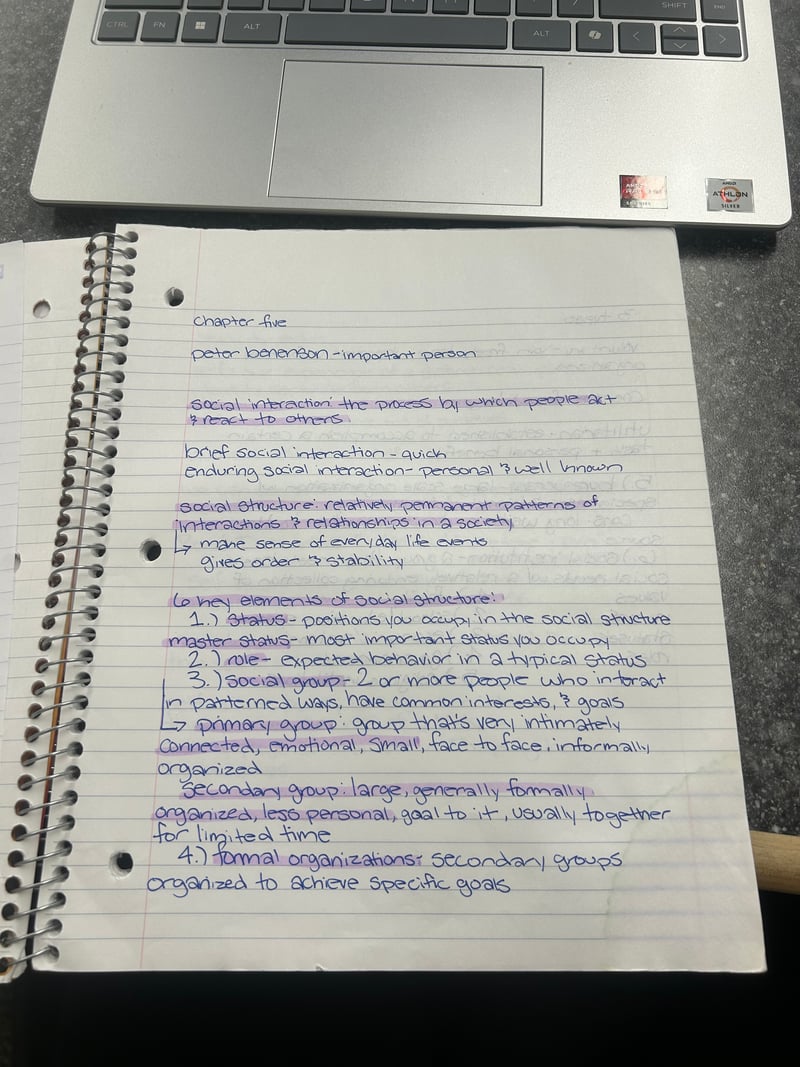 SHIFT
END
CTRL
FN
ALT
ALT
<
>
AMD
ATHLON
SILVER
chapter five
peter benenson - important person
social interaction: the process by which people act
& react to others
brief social interaction - quick
enduring social interaction - personal & well known
social structure: relatively permanent patterns of
interactions & relationships in a society
↳ make sense of everyday life events
gives order & stability
6 key elements of social structure:
1.) status - positions you occupy in the social structure
master status - most important status you occupy
2.) role - expected behavior in a typical status
3.) social group - 2 or more people who interact
in patterned ways, have common interests, & goals
↳ primary group: group that's very intimately
connected, emotional, small, face to face, informally
organized
secondary group: large, generally formally
organized, less personal, goal to it, usually together
for limited time
4.) formal organizations: secondary groups
organized to achieve specific goals